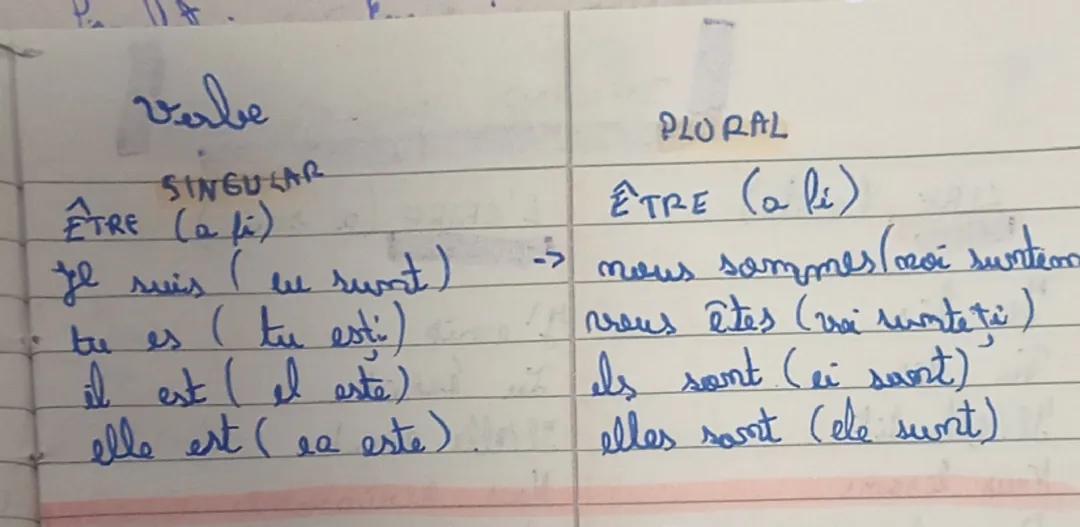 Verbe
SINGULAR
ÊTRE (a fi)
Je suis (eu sunt)
tu es (tu ești)
il est (el este)
elle est (ea este).
PLURAL
ÊTRE (a fi)
-> nous sommes (noi suntem
vous êtes (voi sunteți)
ils sont (ei sunt)
elles sont (ele sunt)